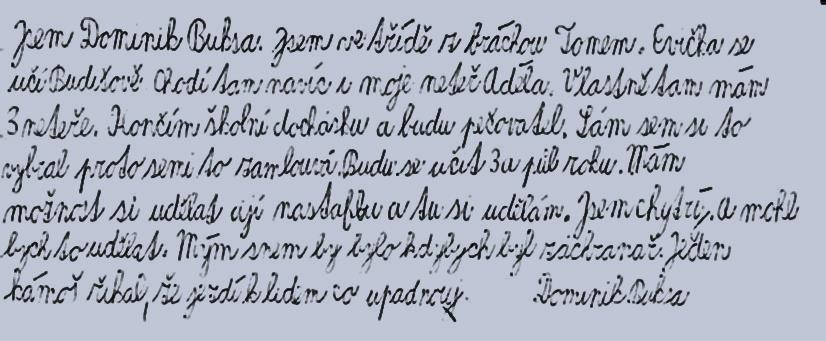 Jsem Dominik Buksa. Jsem ve třídě s bráchou Tomem. Evička se
učí Buditově chodí tam navíc i moje neteř Adéla. Vlastně tam mám
3 neteře. Končím školní docházku a budu pečovatel. Sám sem si to
vybral proto semi to zamlouvá. Budu se učit 3a půl roku. Mám
možnost si udělat její nastafbu a tu si udělám. Jsem chytrý. a mohl
bych to udělat. Mým snem by bylo kdybych byl záchranař. Jeden
kámoš řikal, že jezdí k lidem co upadnouj. Dominik Buksa